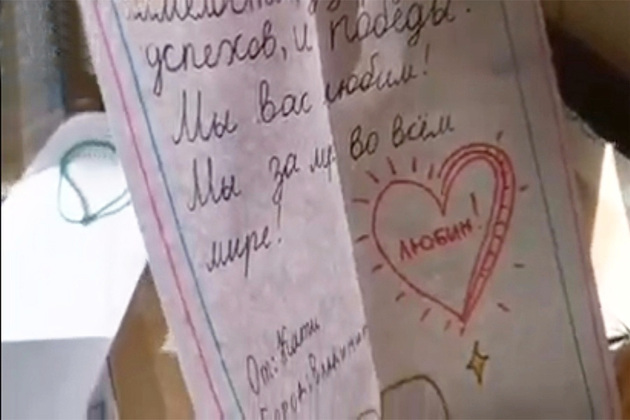 успехов, и победы.
Мы вас любим!
Мы за мир во всём
мире!
ЛЮБИМ!
От: Кати